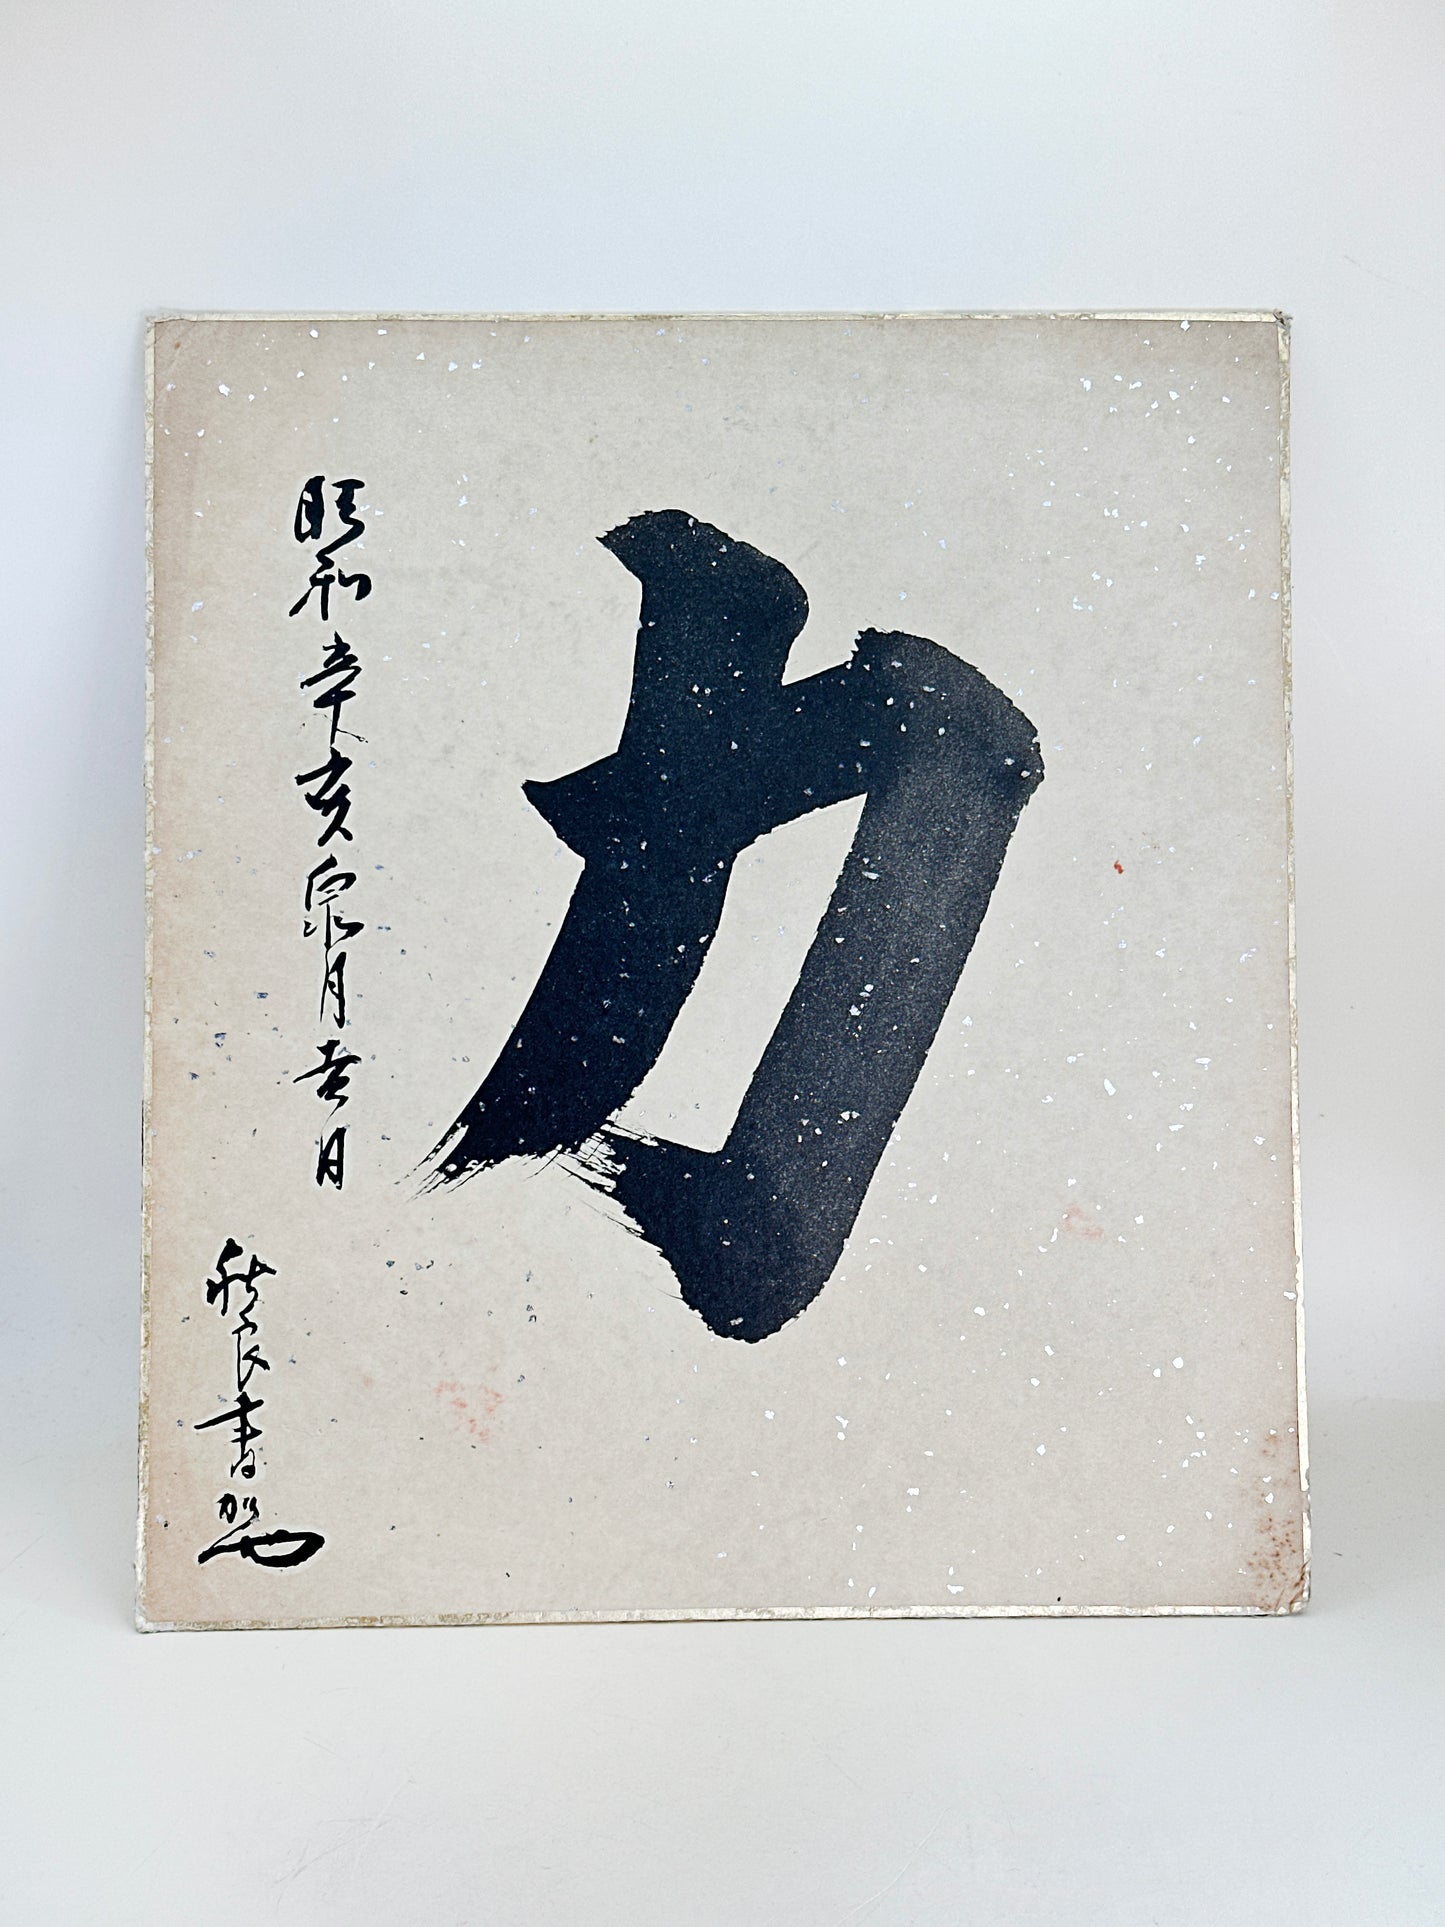 力
昭和辛亥泉月吉日
秋良書